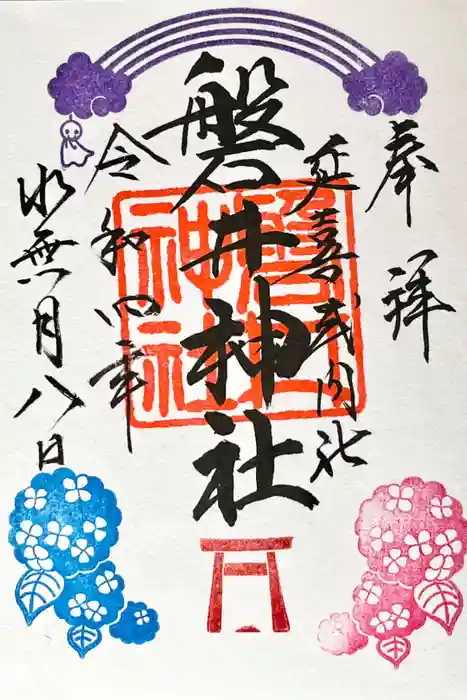 奉拝
延喜式内社
磐井神社
令和四年
水無月八日
磐井神社